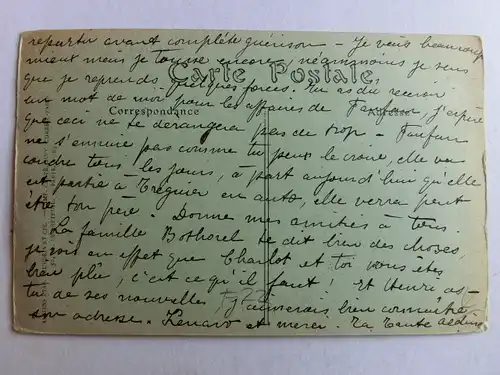 repartir avant complète guérison - Je vais beaucoup
mieux mais je tousse encore, néanmoins je sens
Carte Postale
que je reprends quelques forces. Tu as dû recevoir
un mot de moi pour les affaires de Fanfan, j'espère
Correspondance
Adresse
que ceci ne te dérangera pas de trop - Fanfan
ne s'ennuie pas comme tu peux le croire, elle va
coudre tous les jours, à part aujourd'hui qu'elle
est partie à Tréguier en auto, elle verra peut
être ton père. Donne mes amitiés à tous.
La famille Bothorel te dit bien des choses,
je vois en effet que Charlot et toi vous êtes
bien plu, c'est ce qu'il faut! Et Henri as-
tu de ses nouvelles, j'aimerais bien connaître
son adresse. Kenavo et merci. Ta Tante